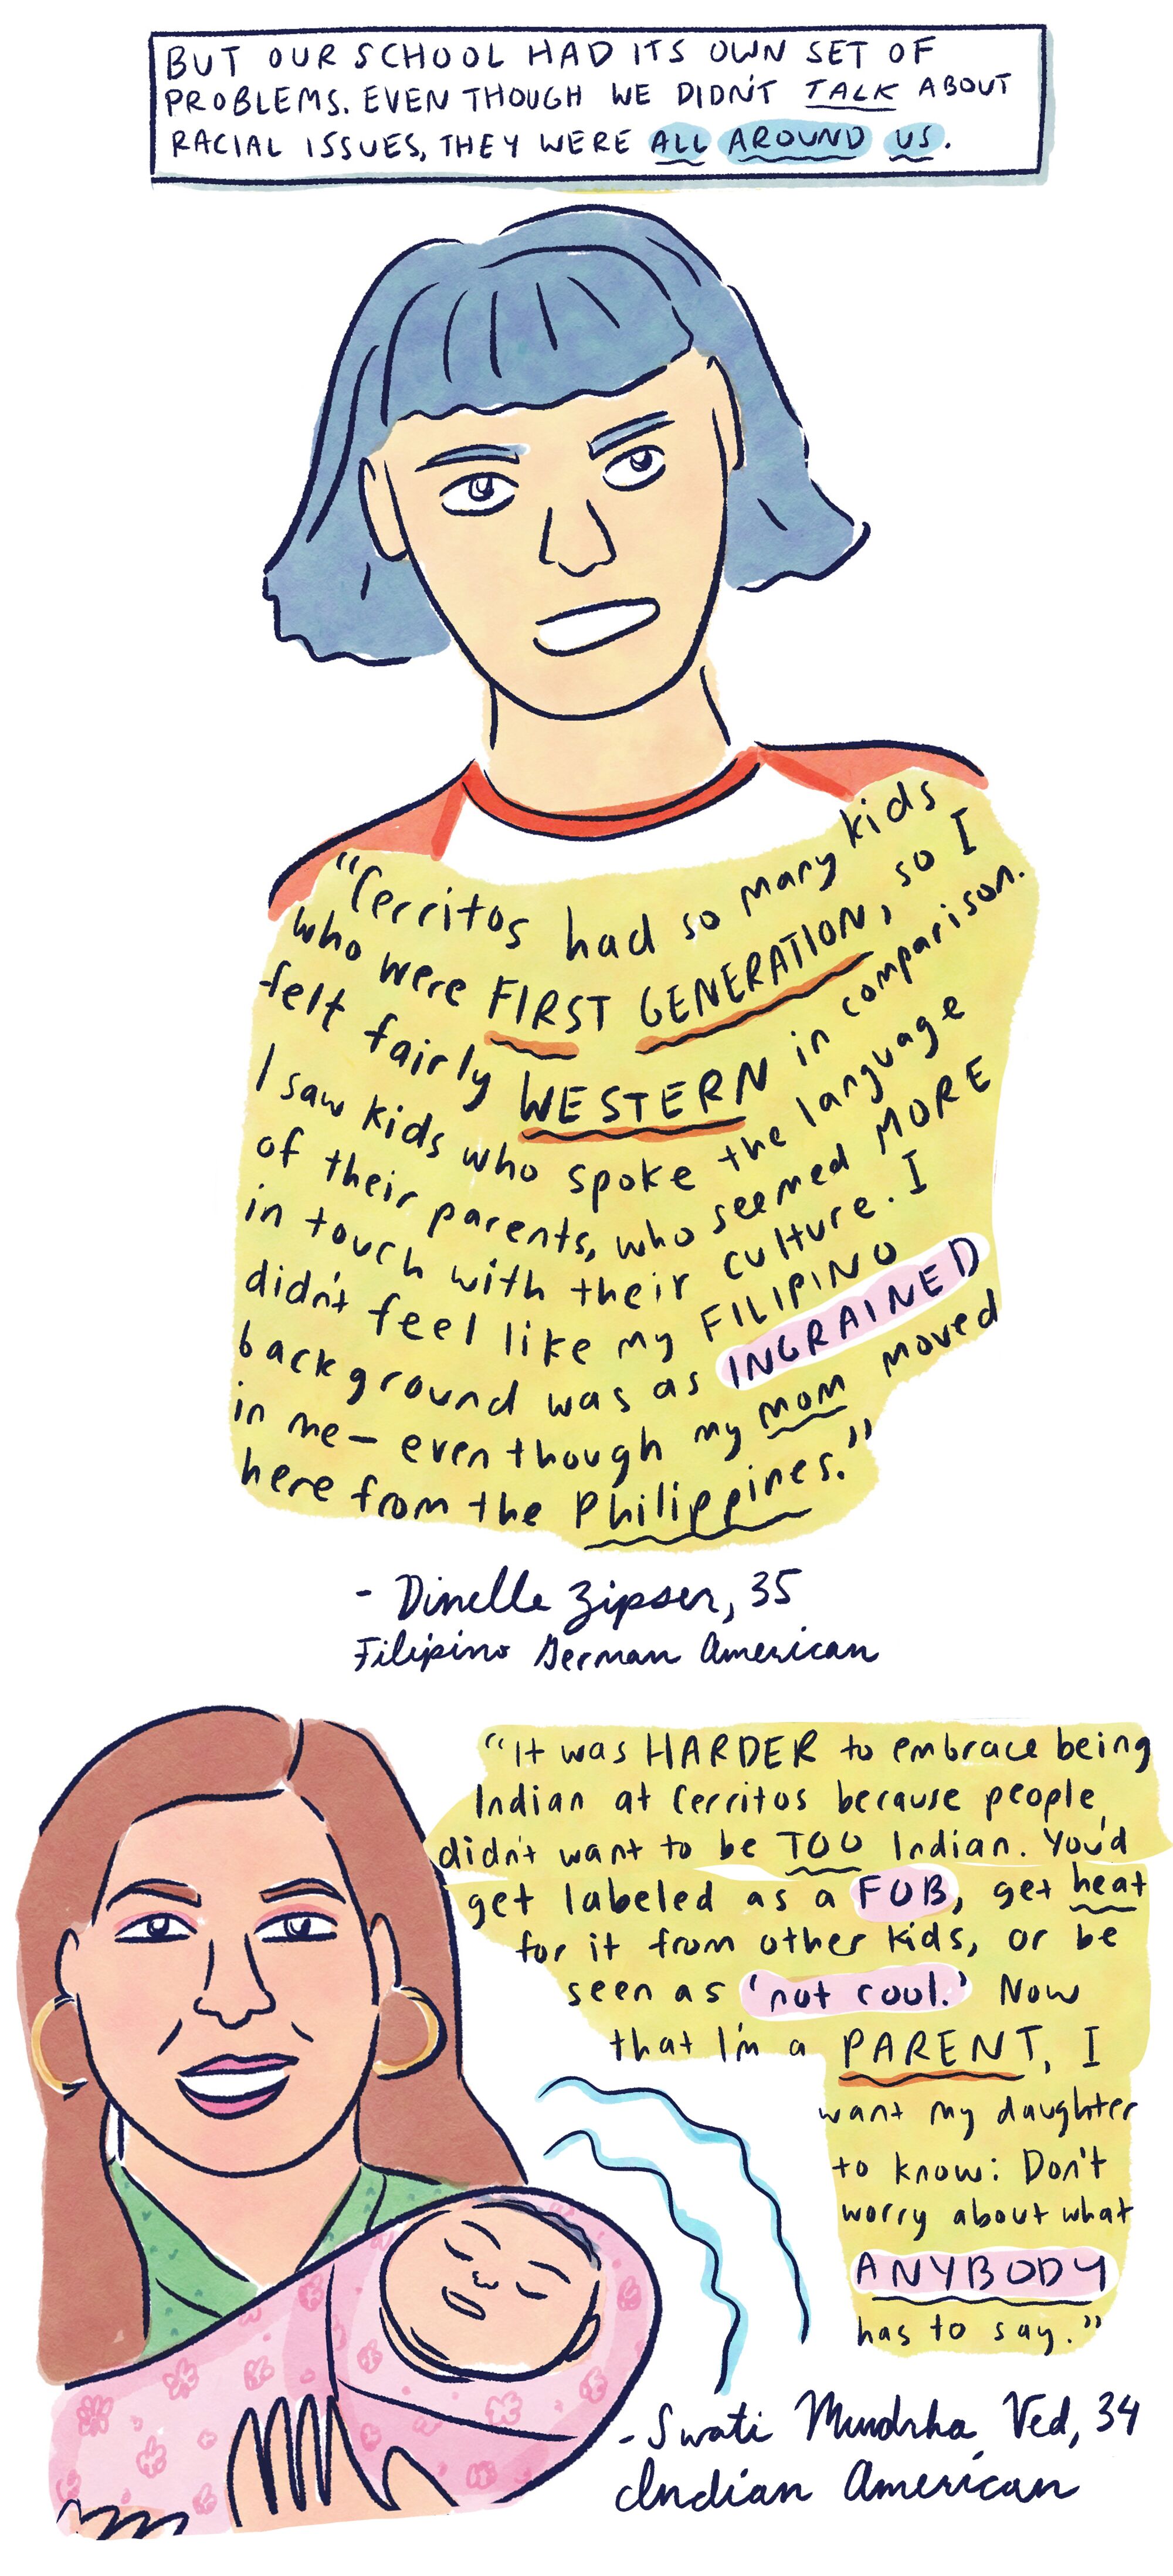 BUT OUR SCHOOL HAD ITS OWN SET OF
PROBLEMS. EVEN THOUGH WE DIDN'T TALK ABOUT
RACIAL ISSUES, THEY WERE ALL AROUND US.
"Cerritos had so many kids
who were FIRST GENERATION, so I
felt fairly WESTERN in comparison.
I saw kids who spoke the language
of their parents, who seemed MORE
in touch with their culture. I
didn't feel like my FILIPINO
background was as INGRAINED
in me — even though my mom moved
here from the Philippines."
- Dinelle Zipser, 35
Filipino German American
"It was HARDER to embrace being
Indian at Cerritos because people
didn't want to be TOO Indian. You'd
get labeled as a FOB, get heat
for it from other kids, or be
seen as 'not cool.' Now
that I'm a PARENT, I
want my daughter
to know: Don't
worry about what
ANYBODY
has to say."
- Swati Mundrha Ved, 34
Indian American